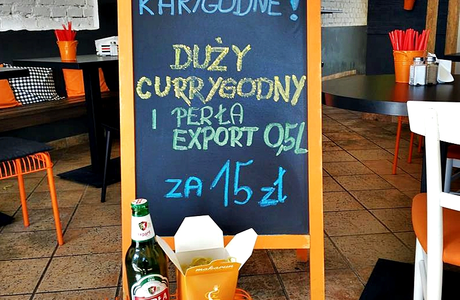 KARYGODNE!
DUŻY
CURRYGODNY
I PERŁA
EXPORT 0,5L
ZA 15 zł